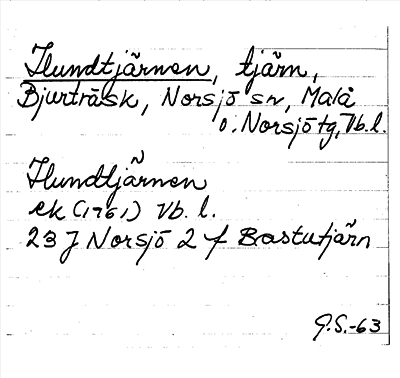 Hundtjärnen, tjärn,
Bjurträsk, Norsjö sn, Malå
o. Norsjö tg, Vb. l.
Hundtjärnen
ek (1961) Vb. l.
23 J Norsjö 2 f Bastutjärn
G.S.-63